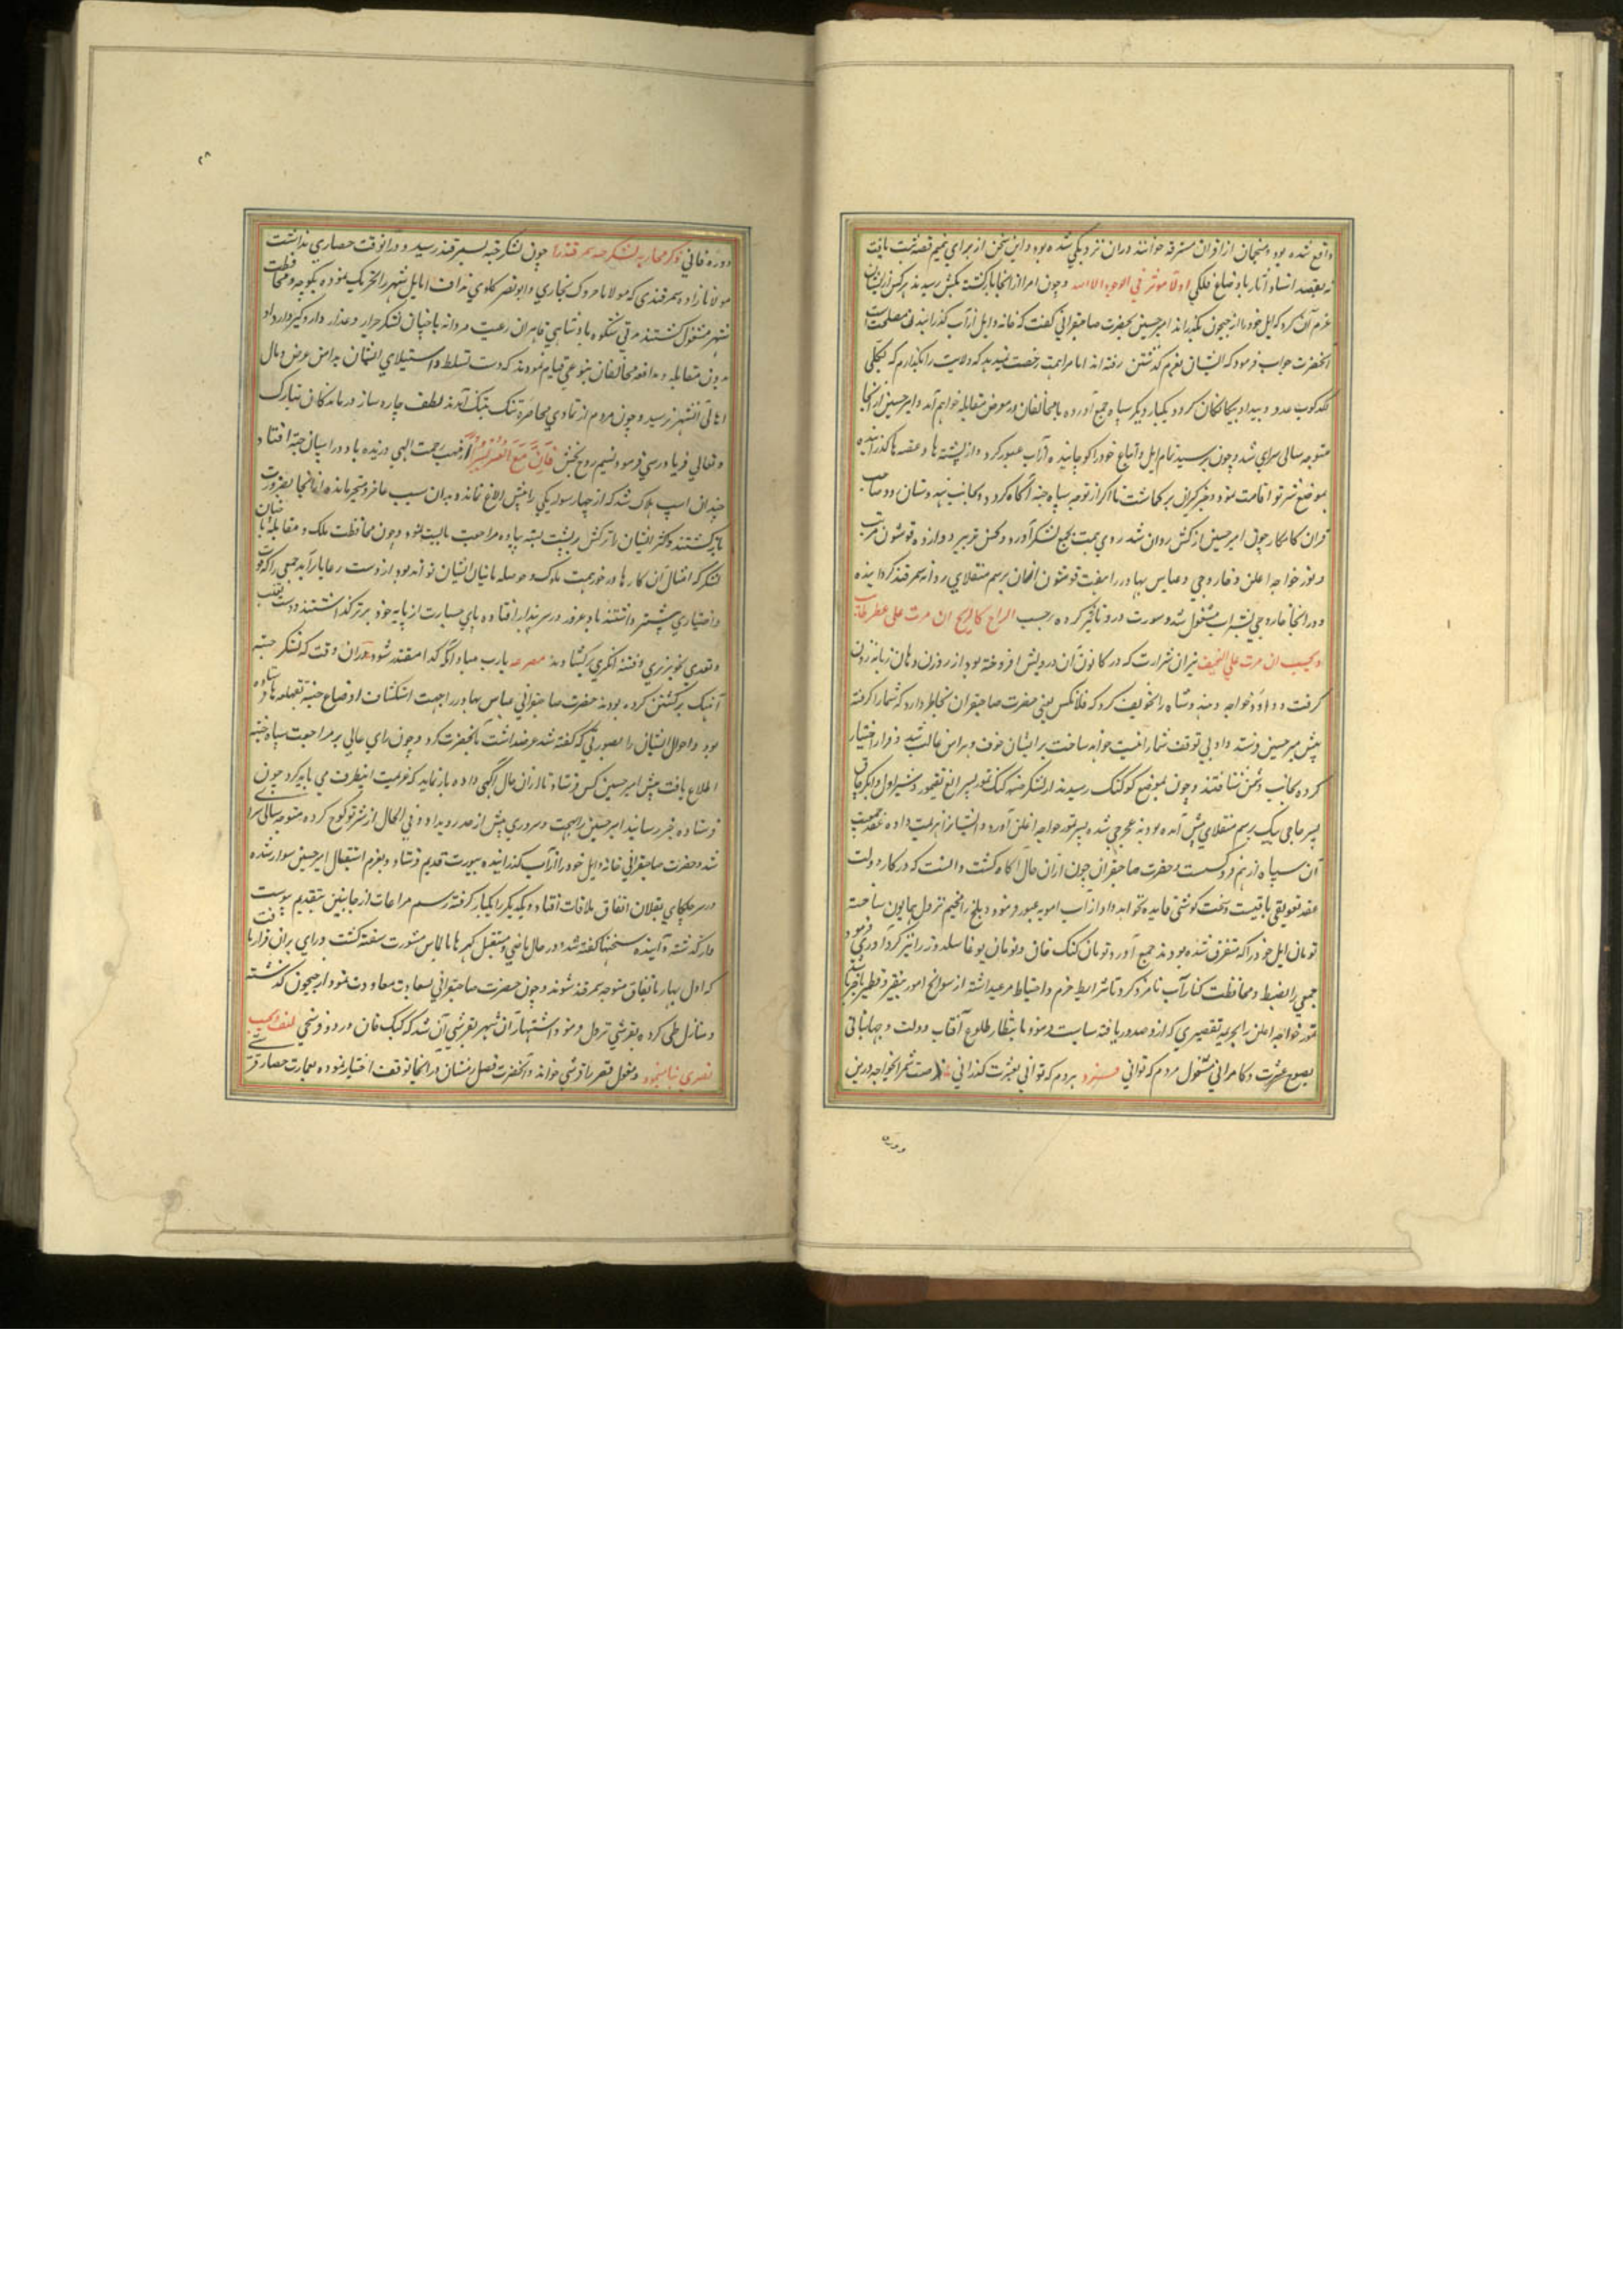 واقع شده بود و منجمان از اقران مشرقه خوانند دران نزدیکی شده بود و این سخن از برای تتمیم قصه ثبت یافت
نه بقصد اسناد آثار باوضاع فلکی اولا موثر فی الوجود الا الله و چون امرا از انجا بازگشته بکش رسیدند هرکس از ایشان
عزم آن کرد که ایل خود را از جیحون بگذراند امیر حسین بحضرت صاحبقرانی گفت که خانه و ایل از آب گذرانیدن مصلحت است
آنحضرت جواب فرمود که ایشان بعزم گذشتن رفته اند اما مرا همت رخصت نمیدهد که ولایت را بگذارم که بکلی
لگدکوب عدو و بیداد بیگانگان گردد یکبار دیگر سپاه جمع آورده با مخالفان در معرض مقابله خواهم آمد و امیر حسین از آنجا
متوجه سالی سرای شد و چون برسید تمام ایل و اتباع خود را کوچانیده از آب عبور کرد و از پشته ها و عقبه ها گذرانیده
بموضع شبرتو اقامت نمود و خبرگیران برگماشت تا اگر از توجه سپاه جته آگاه گردد بجانب هندوستان رود صاحب
قران کامکار چون امیر حسین از کش روان شد روی همت بجمع لشکر آورد و بحسن تدبیر دوازده قوشون مرتب
و تمور خواجه اغلن و جاروجی و عباس بهادر را بهفت قوشون ازیشان برسم منقلای روانه سمرقند گردانیده
و در انجا جاروجی بشراب مشغول شد و سورت درو تاثیر کرده برحسب الراح کالریح ان مرت علی عطر طاب
و یخبث ان مرت علی الجیف نیران شرارت که در کانون درونش افروخته بود از روزن دهان زبانه زدن
گرفت و داود خواجه و هندو شاه را تخویف کرد که فلانکس یعنی حضرت صاحبقران بخاطر دارد که شما را گرفته
پیش میر حسین فرستد و او بی توقف شما را نیست خواهد ساخت برایشان خوف و هراس غالب شد و فرار اختیار
کرده بجانب دشمن شتافتند و چون بموضع کوکنک رسیدند از لشکر جته کپک تمور پسر الغ تقتمور و شیراول و انکرچاق
پسر حاجی بیک برسم منقلای پیش آمده بودند غجرجی شده بسر تمور خواجه اغلن آورد و ایشانرا هزیمت داده عقد جمعیت
آن سپاه از هم فرو گسست حضرت صاحبقران چون ازان حال آگاه گشت دانست که در کار دولت
عقد تعویقی باقیست و سخت کوشی فایده نخواهد داد از آب امویه عبور فرمود و بلخ را مخیم نزول همایون ساخته
تومان ایل خود را که متفرق شده بودند جمع آورد و تومان کپک خان و تومان بوغا سلدوز را نیز گردآوری فرمود
جمعی را بضبط و محافظت کنار آب نامزد کرد تا شرایط حزم و احتیاط مرعی داشته از سوانح امور بنقیر و قطمیر باخبر باشند
تمور خواجه اغلن را بجریمه تقصیری که ازو صدور یافته سیاست فرمود تا بانتظار طلوع آفتاب دولت و جهانبانی
بصبوح عشرت و کامرانی مشغول مردم که توانی میسزد بردم که توانی بعشرت گذرانی
دوره فانی
دوره فانی ذکر محاربه لشکر جته سمرقند را چون لشکر جته بسمرقند رسید و درآنوقت حصاری نداشت
مولانا زاده سمرقندی که مولانا خردک بخاری و ابوبکر کلوی نداف اهالی شهر را تحریک نموده بکوچه و محافظت
شهر مشغول گشتند مدتی بی شکوه پادشاهی قاهر آن رعیت مردانه با چنان لشکر جرار و غدار داروگیر دار داد
بدون مقابله و مدافعه مخالفان بنوعی قیام نمودند که دست تسلط و استیلای ایشان بدامن عرض و مال
اهالی آنشهر نرسید و چون مردم از تمادی محاصره تنگ بتنگ آمدند لطف چاره ساز درماندگان تبارک
و تعالی فریادرسی فرمود و نسیم روح بخش فان مع العسر یسرا از مهب رحمت الهی وزیده باد در اسپان جته افتاد و
چندان اسپ هلاک شد که از چهار سوار یکی را پیش الاغ نمانده بدان سبب عاجز و متحیر مانده از آنجا بضرورت
بازگشتند و اکثر ایشان ترکش برپشت بسته پیاده مراجعت بایست نمود و چون محافظت ملک و مقابله با چنان
لشکر که امثال آن کارها درخور همت ملوک و حوصله مانیان ایشان تواند بود از دست رعایا برآید جمعی را که قوت
و اختیاری بیشتر داشتند باد غرور در سر پندار افتاده پای جسارت از پایه خود برتر گذاشتند و دست تغلب
و تعدی بخونریزی و فتنه انگیزی برگشادند مصرعه یارب مباد آنکه گدا معتبر شود دران وقت که لشکر جته
آهنگ برگشتن کرده بودند حضرت صاحبقرانی عباس بهادر را جهت استکشاف اوضاع جته بقهلغه فرستاده
بود و احوال ایشان را بصورتی که گفته شد عرضه داشت بآنحضرت کرد و چون رای عالی بر مراجعت سپاه جته
اطلاع یافت پیش امیر حسین کس فرستاد تا ازان حال آگهی داده باز نماید که عزیمت اینطرف می باید کرد چون
فرستاده خبر رسانید امیر حسین را بهجت و سروری بیش از حد روی داد و فی الحال از شبرتو کوچ کرده متوجه سالی سرای
شد و حضرت صاحبقرانی خانه و ایل خود را از آب گذرانیده بیورت قدیم فرستاد و بعزم استقبال امیر حسین سوار شده
در سر جلگای بقلان اتفاق ملاقات افتاد و یکدیگر را بکنار گرفته رسم مراعات از جانبین بتقدیم پیوست
و از گذشته و آینده سخنها گفته شد و در حال ماضی و مستقبل گهرها بالماس مشورت سفته گشت و رای بران قرار یافت
که اول بهار باتفاق متوجه سمرقند شوند و چون حضرت صاحبقرانی بسعادت معاودت نمود از جیحون گذشته
و منازل طی کرده بقرشی نزول فرمود و اشتهار آن شهر بقرشی آن شد که کپک خان در دو فرسخی نسف و نخشب
قصری بنا نمود و مغول قصر را قرشی خواند و آنحضرت فصل زمستان در آنجا توقف اختیار نموده بعمارت حصار قرشی